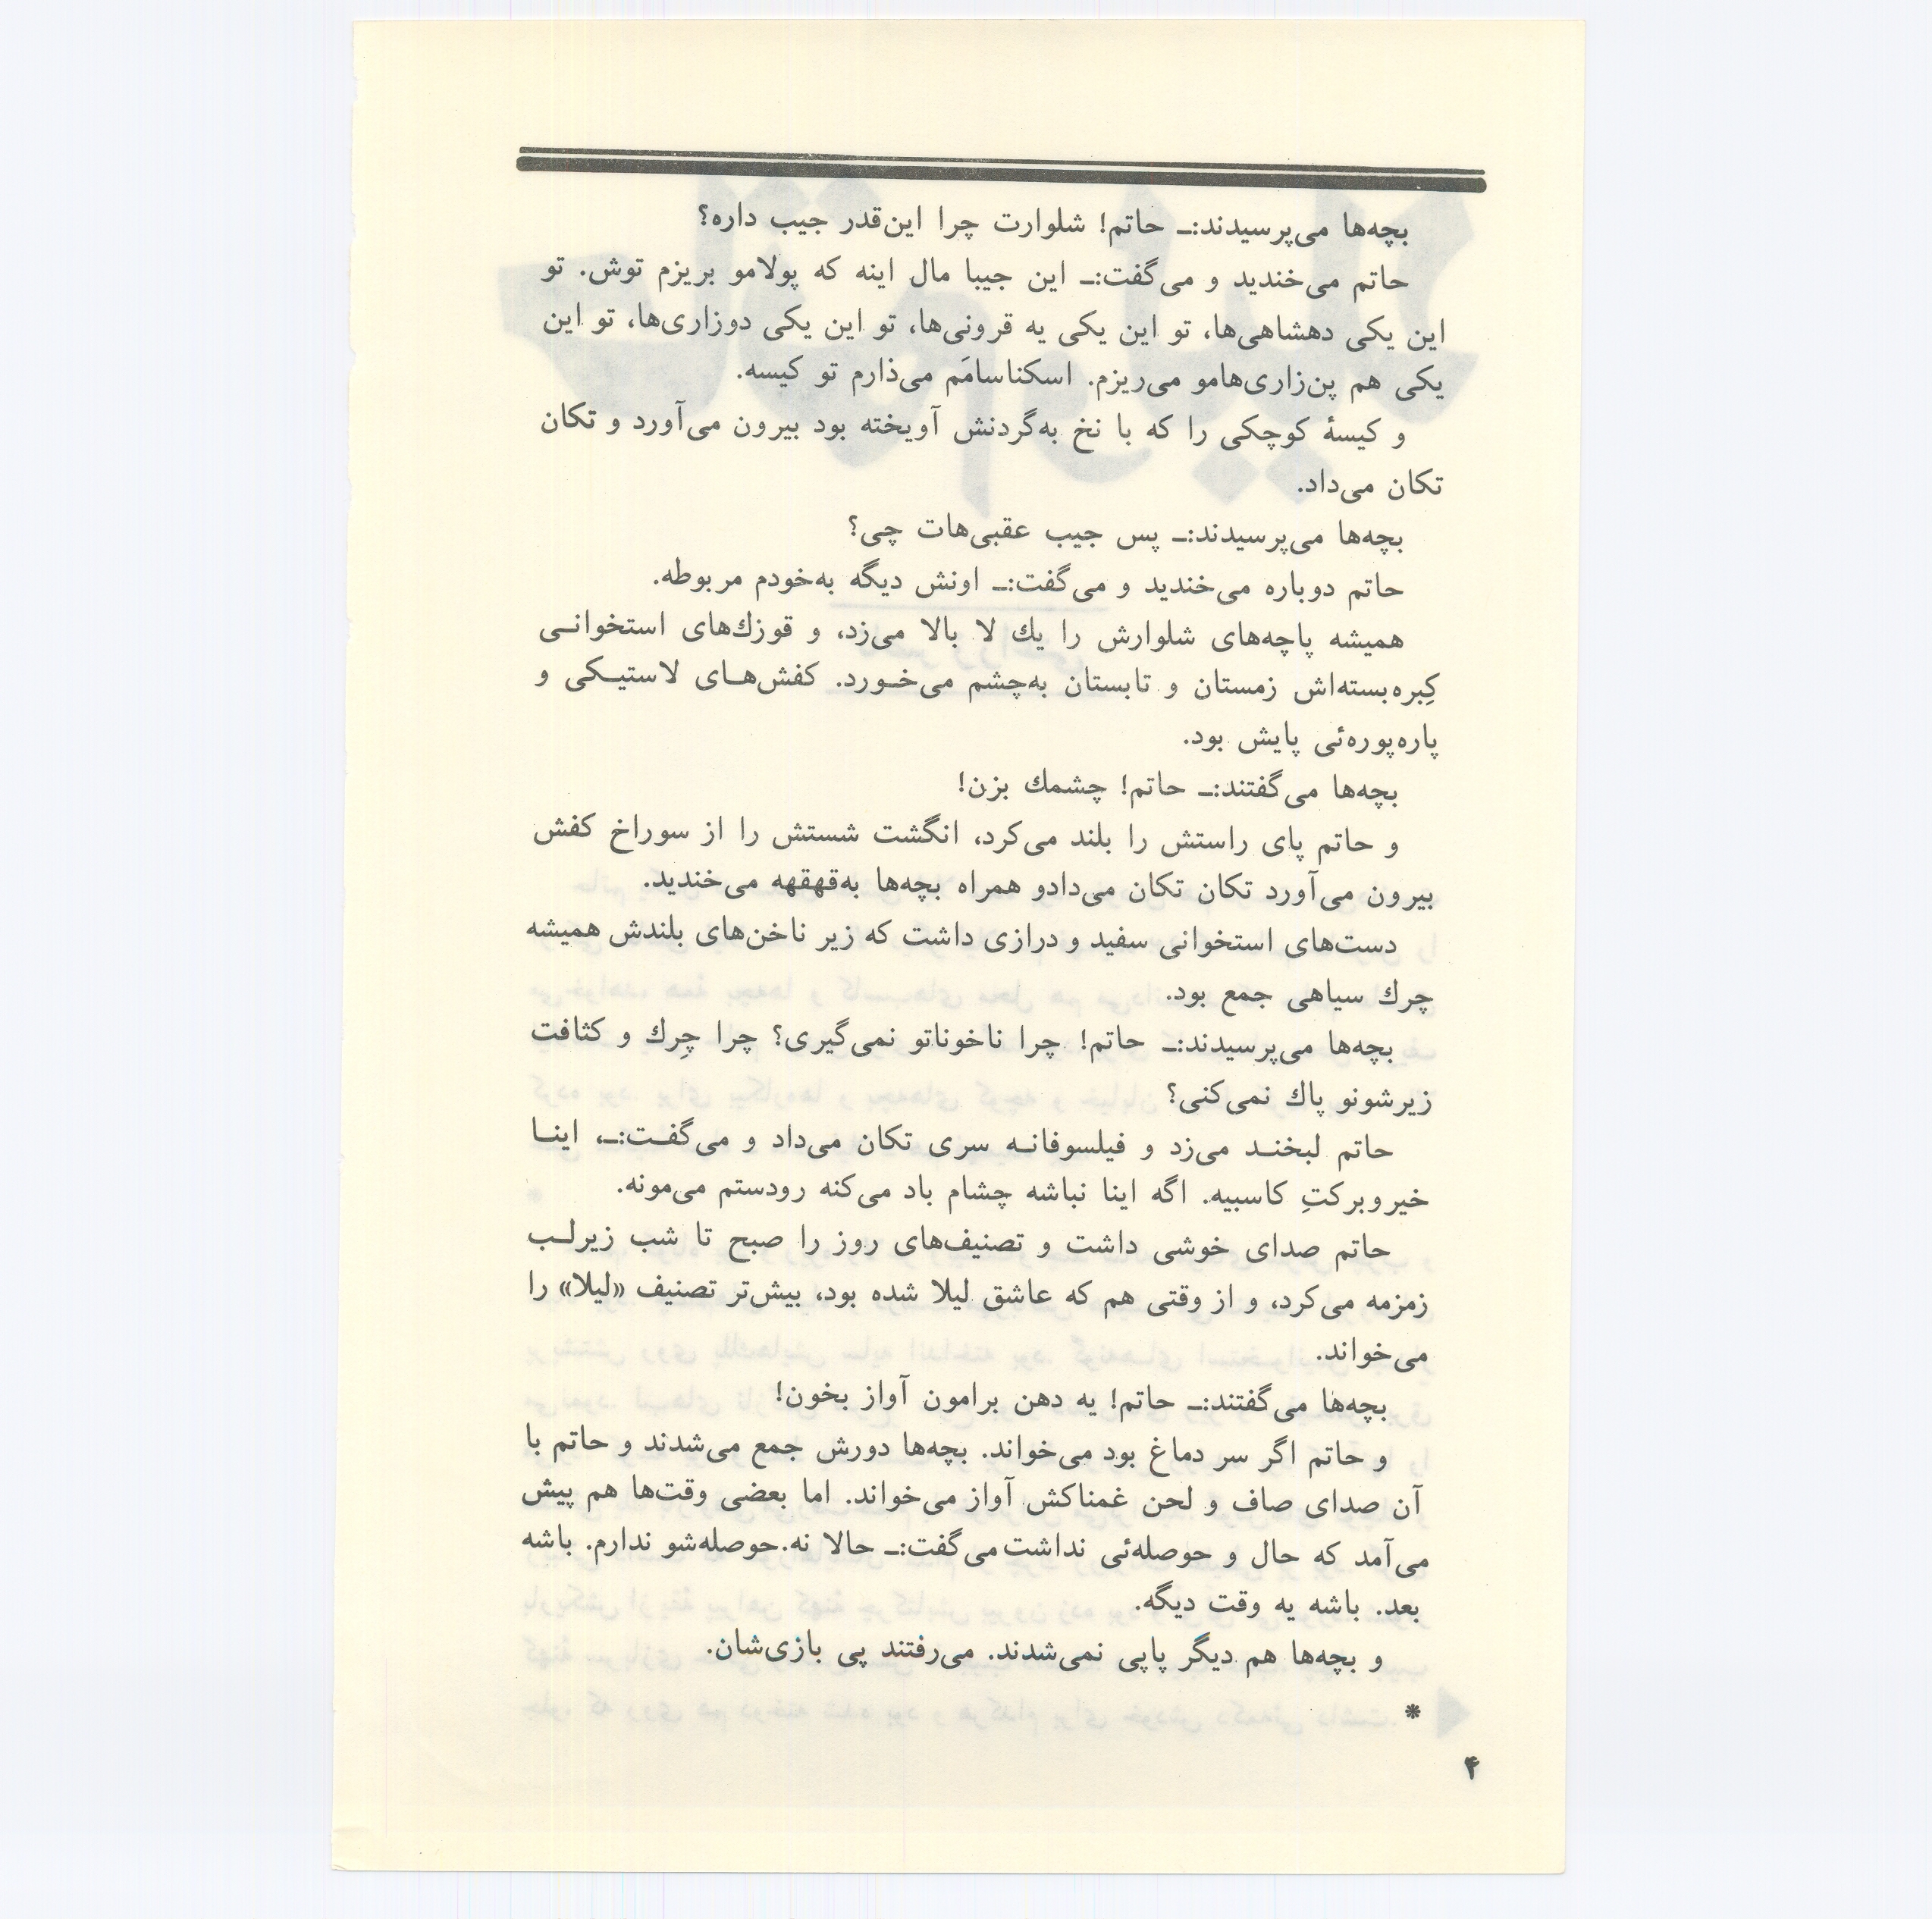 بچه‌ها می‌پرسیدند:ـ حاتم! شلوارت چرا این‌قدر جیب داره؟
حاتم می‌خندید و می‌گفت:ـ این جیبا مال اینه که پولامو بریزم توش. تو
این یکی دهشاهی‌ها، تو این یکی یه قرونی‌ها، تو این یکی دوزاری‌ها، تو این
یکی هم پن‌زاری‌هامو می‌ریزم. اسکناسامَم می‌ذارم تو کیسه.
و کیسهٔ کوچکی را که با نخ به‌گردنش آویخته بود بیرون می‌آورد و تکان
تکان می‌داد.
بچه‌ها می‌پرسیدند:ـ پس جیب عقبی‌هات چی؟
حاتم دوباره می‌خندید و می‌گفت:ـ اونش دیگه به‌خودم مربوطه.
همیشه پاچه‌های شلوارش را یك لا بالا می‌زد، و قوزك‌های استخوانـی
کِبره‌بسته‌اش زمستان و تابستان به‌چشم می‌خـورد. کفش‌هـای لاستیـکی و
پاره‌پوره‌ئی پایش بود.
بچه‌ها می‌گفتند:ـ حاتم! چشمك بزن!
و حاتم پای راستش را بلند می‌کرد، انگشت شستش را از سوراخ کفش
بیرون می‌آورد تکان تکان می‌دادو همراه بچه‌ها به‌قهقهه می‌خندید.
دست‌های استخوانی سفید و درازی داشت که زیر ناخن‌های بلندش همیشه
چرك سیاهی جمع بود.
بچه‌ها می‌پرسیدند:ـ حاتم! چرا ناخوناتو نمی‌گیری؟ چرا چِرك و کثافت
زیرشونو پاك نمی‌کنی؟
حاتم لبخنـد می‌زد و فیلسوفانـه سری تکان می‌داد و می‌گفـت:ـ، اینـا
خیروبرکتِ کاسبیه. اگه اینا نباشه چشام باد می‌کنه رودستم می‌مونه.
حاتم صدای خوشی داشت و تصنیف‌های روز را صبح تا شب زیرلـب
زمزمه می‌کرد، و از وقتی هم که عاشق لیلا شده بود، بیش‌تر تصنیف «لیلا» را
می‌خواند.
بچه‌ها می‌گفتند:ـ حاتم! یه دهن برامون آواز بخون!
و حاتم اگر سر دماغ بود می‌خواند. بچه‌ها دورش جمع می‌شدند و حاتم با
آن صدای صاف و لحن غمناکش آواز می‌خواند. اما بعضی وقت‌ها هم پیش
می‌آمد که حال و حوصله‌ئی نداشت می‌گفت:ـ حالا نه.حوصله‌شو ندارم. باشه
بعد. باشه یه وقت دیگه.
و بچه‌ها هم دیگر پاپی نمی‌شدند. می‌رفتند پی بازی‌شان.
*
۴